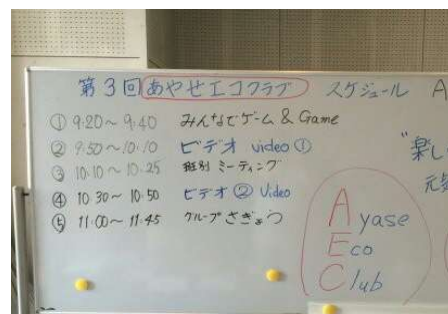 第3回 あやせエコクラブ スケジュール A
① 9:20～9:40 みんなでゲーム & Game
② 9:50～10:10 ビデオ video ①
③ 10:10～10:25 班別 ミーティング
④ 10:30～10:50 ビデオ ② Video
⑤ 11:00～11:45 グループ さぎょう
"楽し
元気
Ayase
Eco
Club